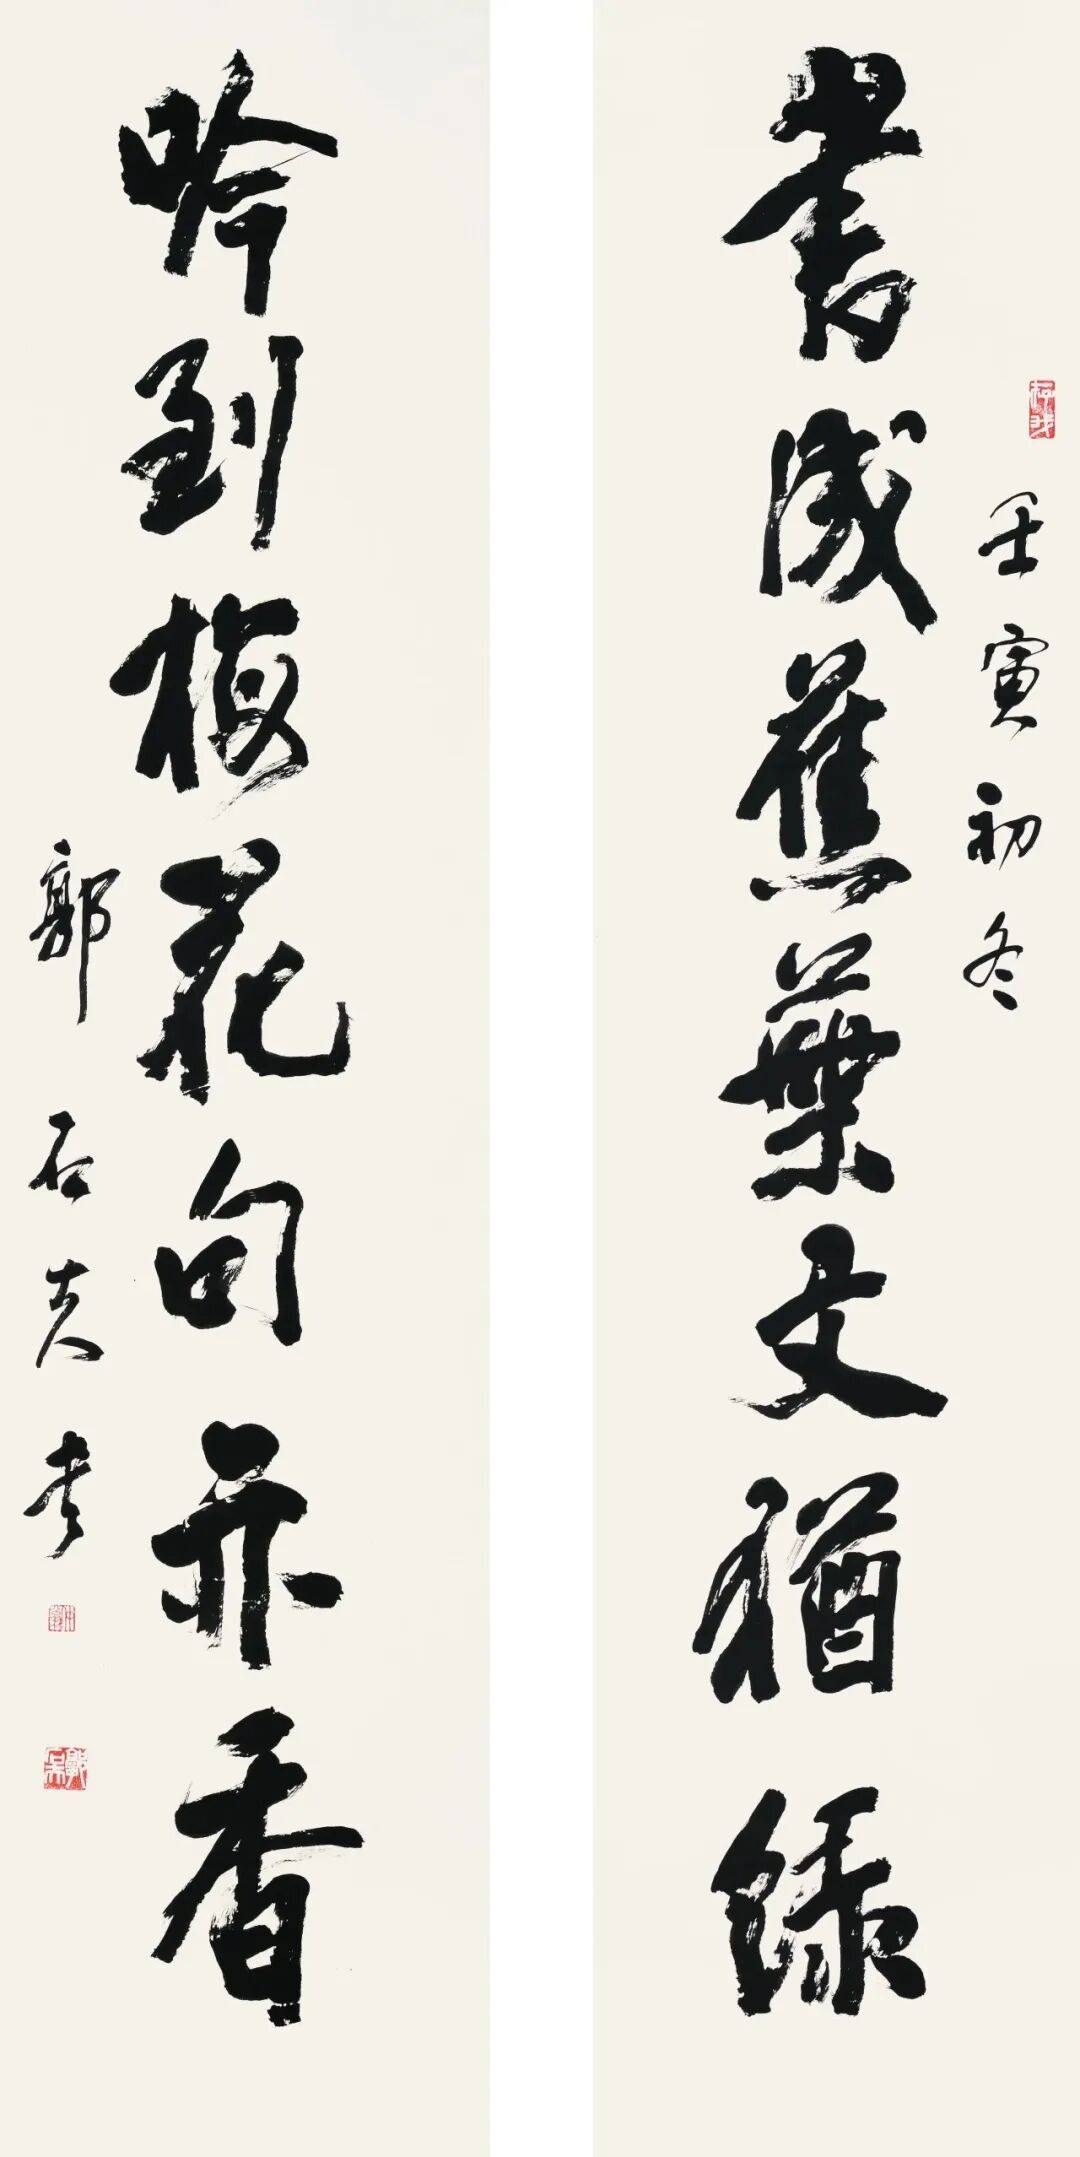 書成蕉葉文猶綠
壬寅初冬
吟到梅花句亦香
郭石夫書